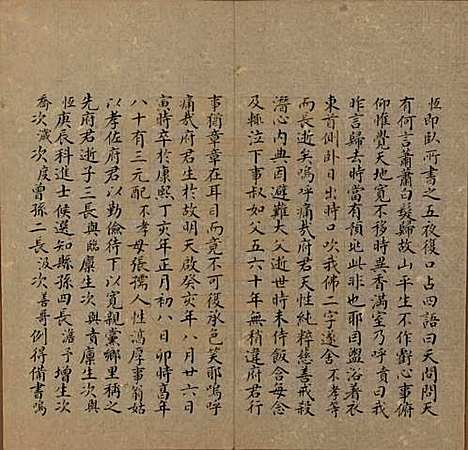 恆即臥所書之五夜後口占四語曰天問問天
有何言蕭蕭白髮歸故山平生不作虧心事俯
仰惟覺天地寬不移時異香滿室乃呼貴曰我
非言歸去時當有預地此非也耶因盥浴着衣
東首側卧日出時口吹我佛二字遂舍不孝等
而長逝矣嗚呼痛哉府君天性純粹慈善戒殺
潛心內典因避難大父逝世時未侍飯含每念
及輒泣下事叔如父五六十年無稍違府君行
事猶章章在耳目而竟不可復承色笑耶嗚呼
痛哉府君生於故明天啟癸亥年八月廿六日
寅時卒於康熙丁亥年正月初八日卯時高年
八十有三元配不孝母張孺人性濇厚事翁姑
以孝佐府君以勤儉待下以寬親黨鄉里稱之
先府君逝子三長與臨廩生次與貴廩生次與
恆庚辰科進士候選知縣孫四長濬予增生次
喬次瀻次度曾孫二長汲次善哥例得備書嗚